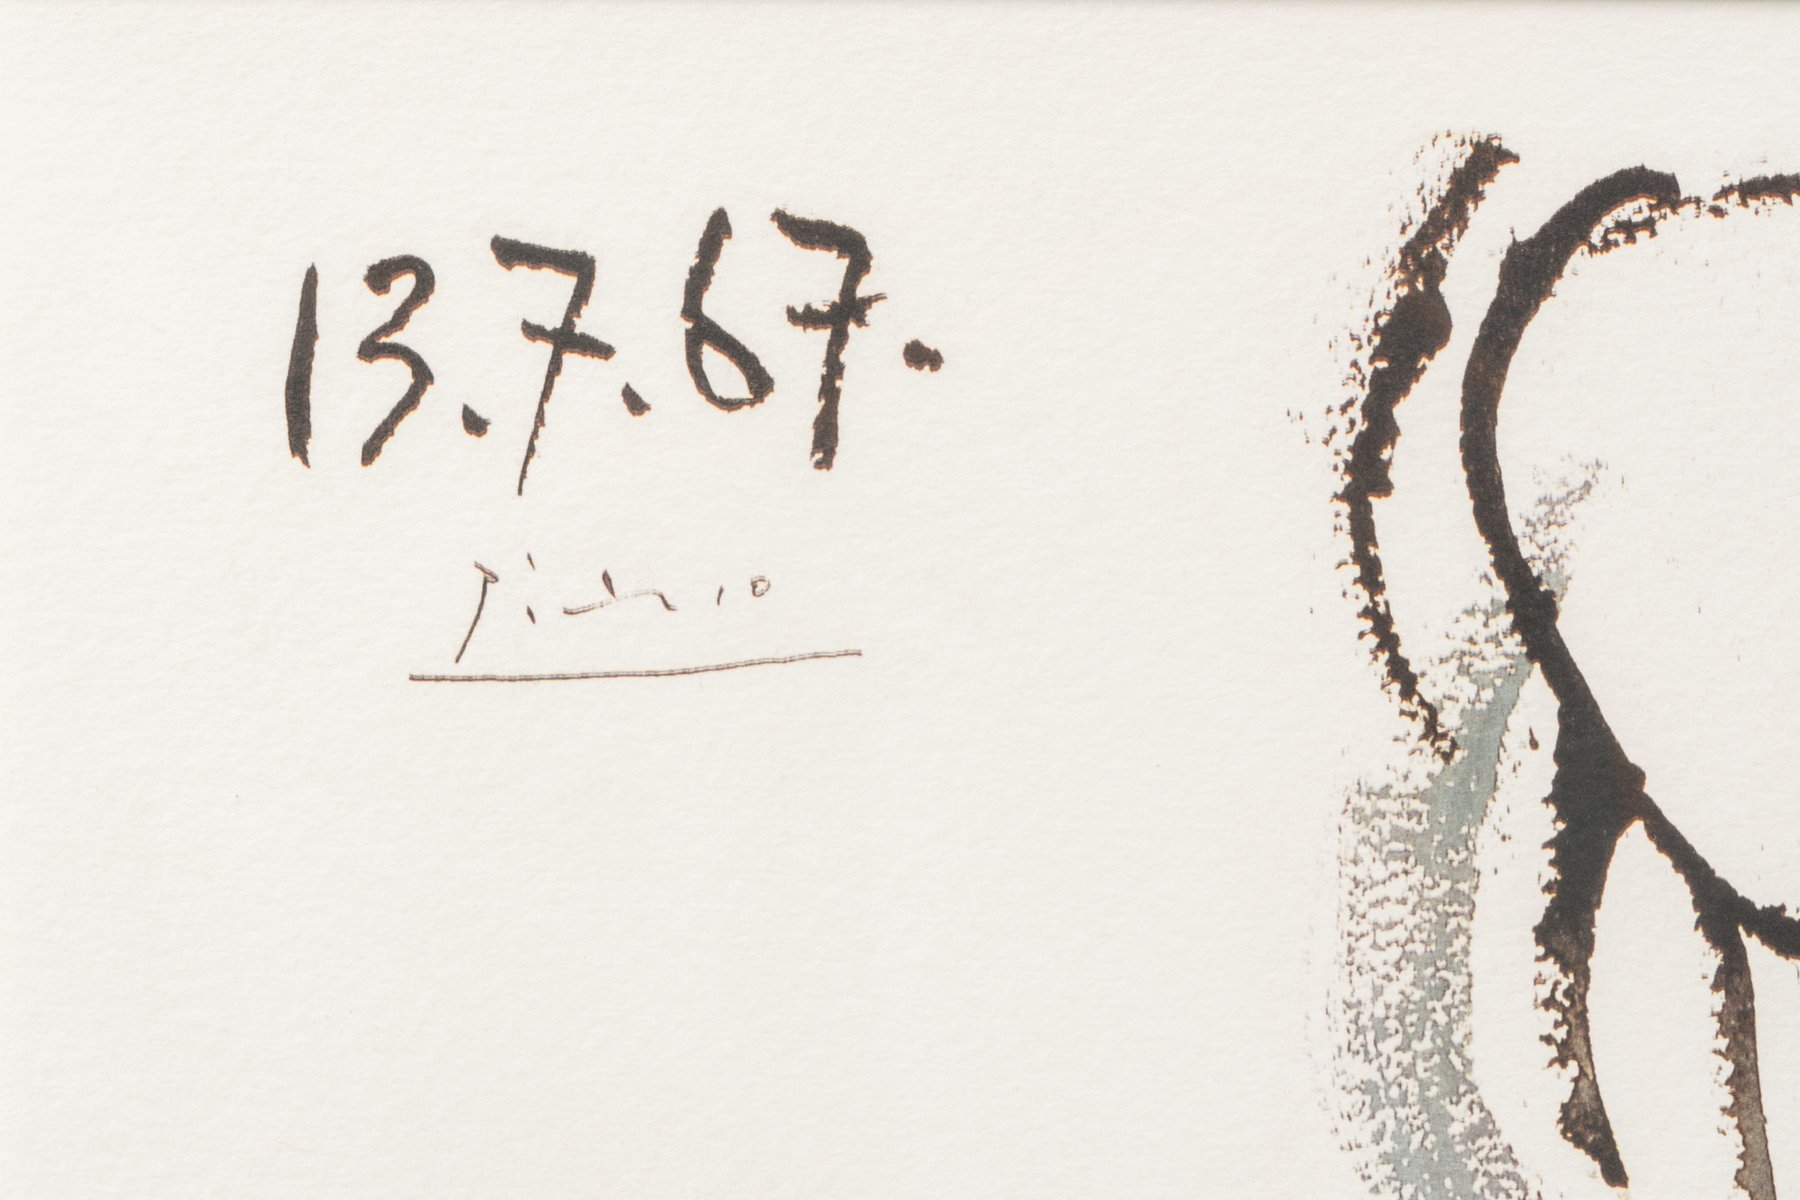 13.7.67.
Picasso